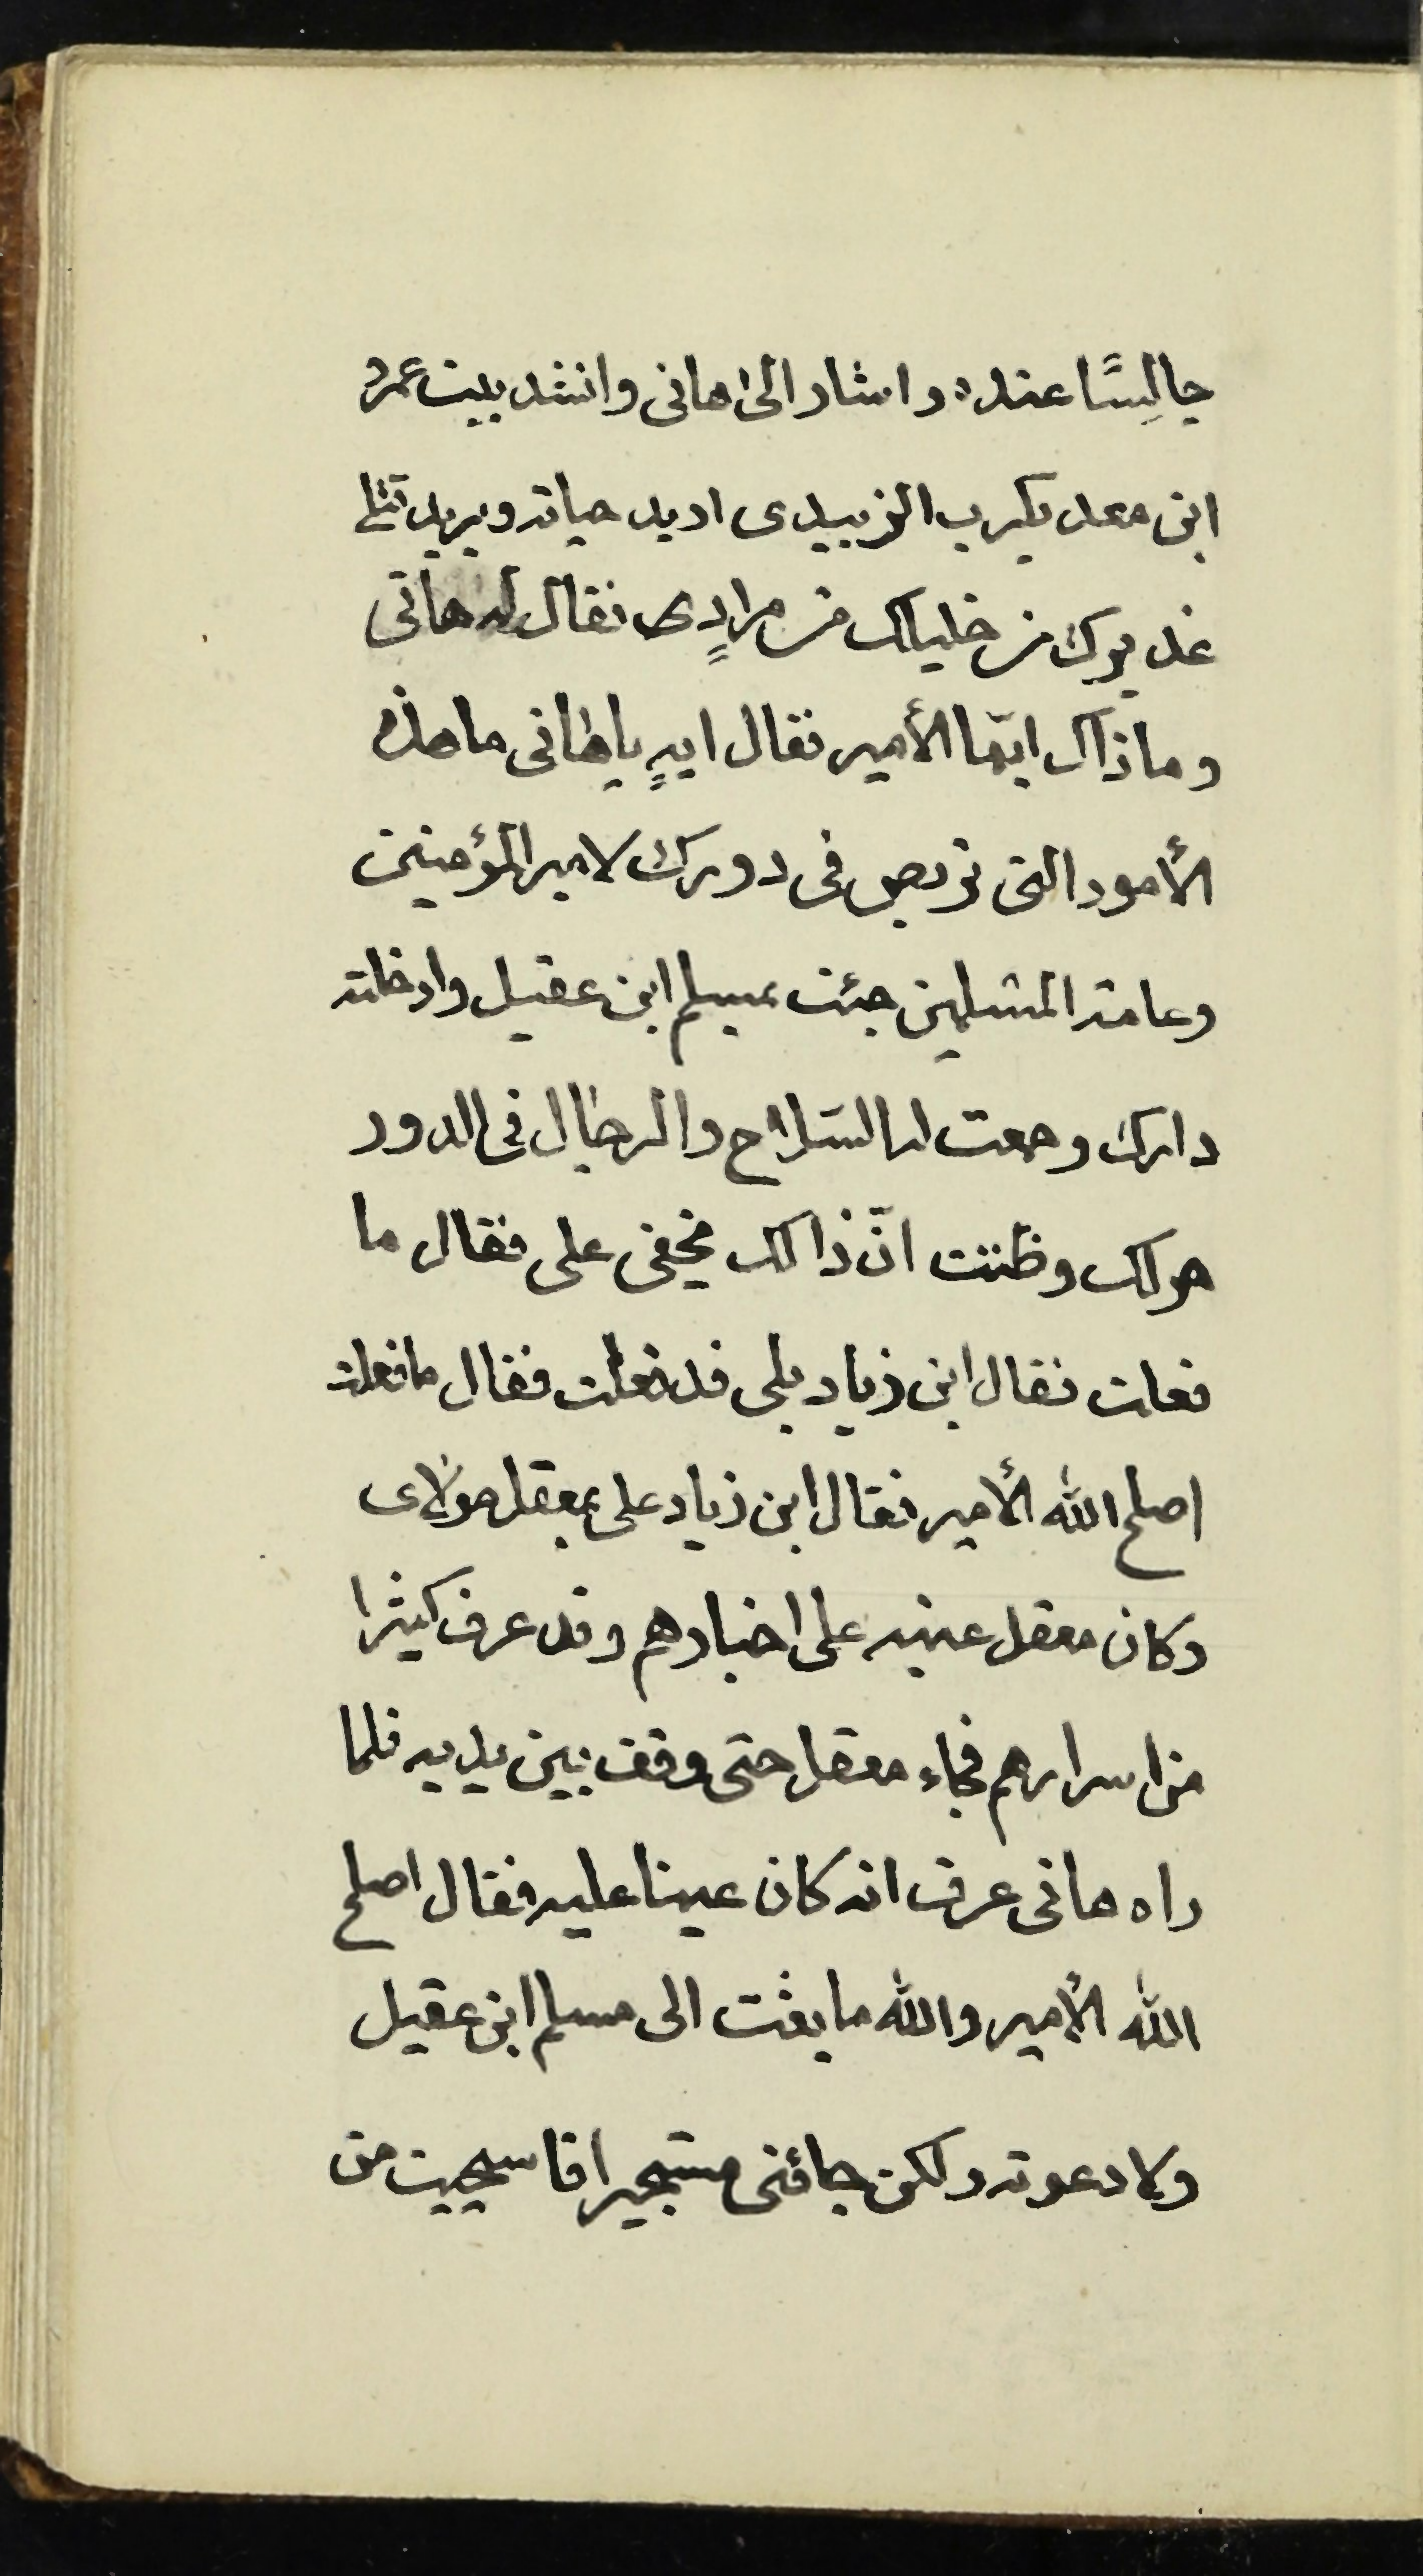 جالِسًا عنده واشار الى هانى وانشد بيت عمرو
ابن معد يكرب الزبيدى اريد حياته ويريد قتلى
غديرك من خليلك من مرادٍى فقال له هانى
وما ذاك ايّها الأمير فقال ايهٍ يا هانى ما هذه
الأمور التى تربص فى دورك لامير المؤمنين
وعامة المسلمين جئت بمسلم ابن عقيل وادخلته
دارك وجمعت له السّلاح والرجال فى الدور
حولك وظننت انّ ذالك يخفى على فقال ما
فعلت فقال ابن زياد بلى قد فعلت فقال ما فعلت
اصلح الله الأمير فقال ابن زياد على بمعقل مولاى
وكان معقل عينه على اخبارهم وقد عرف كثيرا
من اسرارهم فجاء معقل حتى وقف بين يديه فلما
راه هانى عرف انه كان عينا عليه فقال اصلح
الله الأمير والله ما بعثت الى مسلم ابن عقيل
ولا دعوته ولكن جائنى مستجيرا فاستحييت من